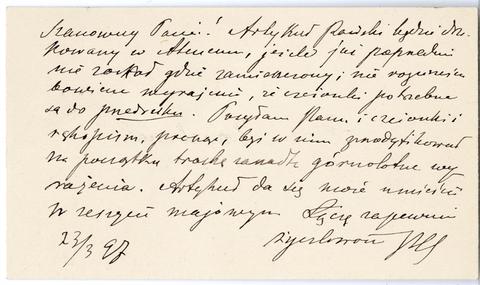 Szanowny Panie! Artykuł Pański będzie dru-
kowany w Ateneum, jeżeli już poprzednio
nie został gdzie zamieszczony, i nie rozumiem
bowiem wyrażenia, że czcionki potrzebne
są do przedruku. Posyłam Panu i czcionki i
rękopism, prosząc, byś w nim zmodyfikował
na początku trochę zanadto górnolotne wy-
rażenia. Artykuł da się może umieścić
w zeszycie majowym Łączę zapewnienie
życzliwości
23/3 97